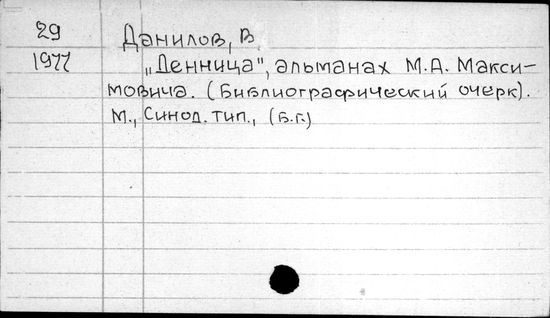 29
1977
Данилов, В.
„Денница", альманах М.А. Макси-
мовича. (Библиографический очерк).
М., Синод. тип., (б.г.)